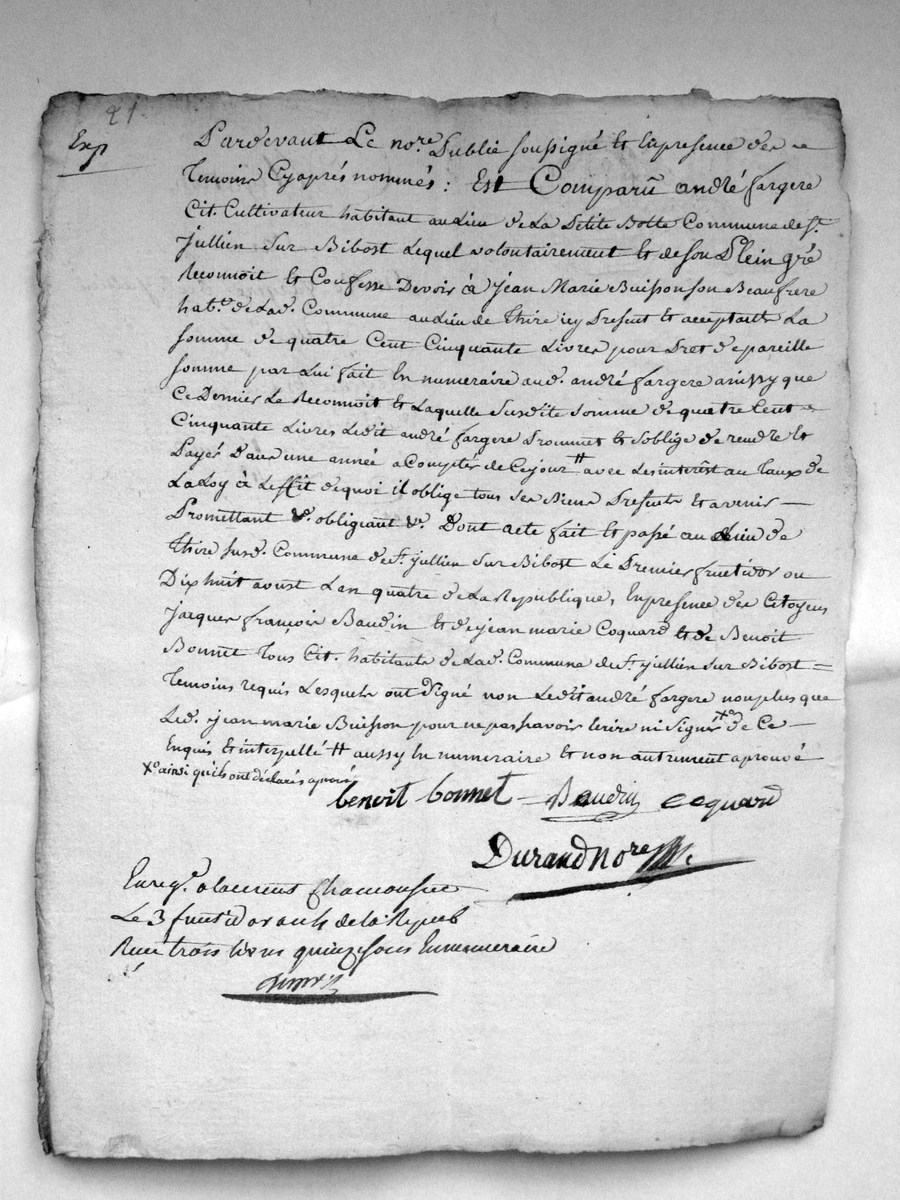 21
Exp
Pardevant Le no.re Public soussigné et En presence des
Temoins Cy aprés nommés : Est Comparû andré fargere
Cit. Cultivateur habitant au Lieu de La Petite Botte Commune de S.t
Jullien sur Bibost Lequel volontairement et de son Plein gré
Reconnoit et Confesse Devoir à Jean Marie Buisson son Beaufrere
hab.t de Lad. Commune au Lieu de Thire icy Present et acceptant La
somme de quatre Cent Cinquante Livres pour Pret de pareille
somme par Lui fait En numeraire aud. andré fargere ainssy que
Ce Dernier Le Reconnoit et Laquelle Susdite somme de quatre Cent
Cinquante Livres Ledit andré fargere Prommet et soblige de rendre et
Payér Dans une année a Comptér de Ce jour # avec Les interêst au Taux de
La Loy à Leffit de quoi il oblige tous ses Biens Presents et avenir —
Promettant &. obligeant &. Dont acte fait et passé au Lieu de
Thire susd. Commune de S.t jullien sur Bibost Le Premier fructidor ou
Dix huit aoust Lan quatre de La Republique, En presence des Citoyens
Jacques françois Baudin et de jean marie Coquard et de Benoit
Bonnet Tous Cit. habitants de Lad. Commune de S.t jullien sur Bibost =
Temoins requis Lesquels ont signé non Ledit andré fargere non plus que
Led. jean marie Buisson pour ne pas savoir Ecrire ni Signer X.o de Ce —
Enquis et interpellé # aussy En numeraire et non autrement aprouvé
X.o ainsi qu'ils ont déclarés
benoit bonnet Baudin coquard
Durand No.re
Enreg. a Laurent Chamousset
Le 3 fructidor an 4 de la Repub
Reçu trois livres quinze sous En numeraire